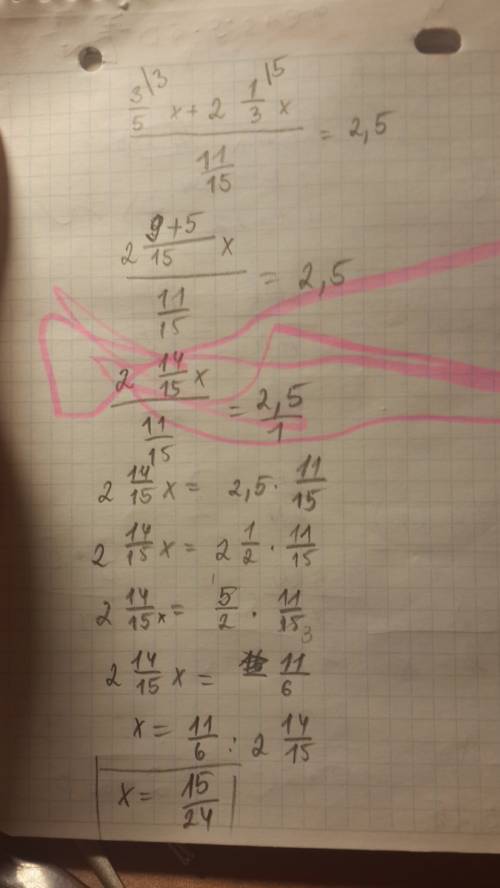 3/5 \3 x + 2 1/3 \5 x
11/15 = 2,5
2 9+5/15 x
11/15 = 2,5
2 14/15 x
11/15 = 2,5/1
2 14/15 x = 2,5 · 11/15
2 14/15 x = 2 1/2 · 11/15
2 14/15 x = 5/2 · 11/15 3
2 14/15 x = 11/6
x = 11/6 : 2 14/15
x = 15/24